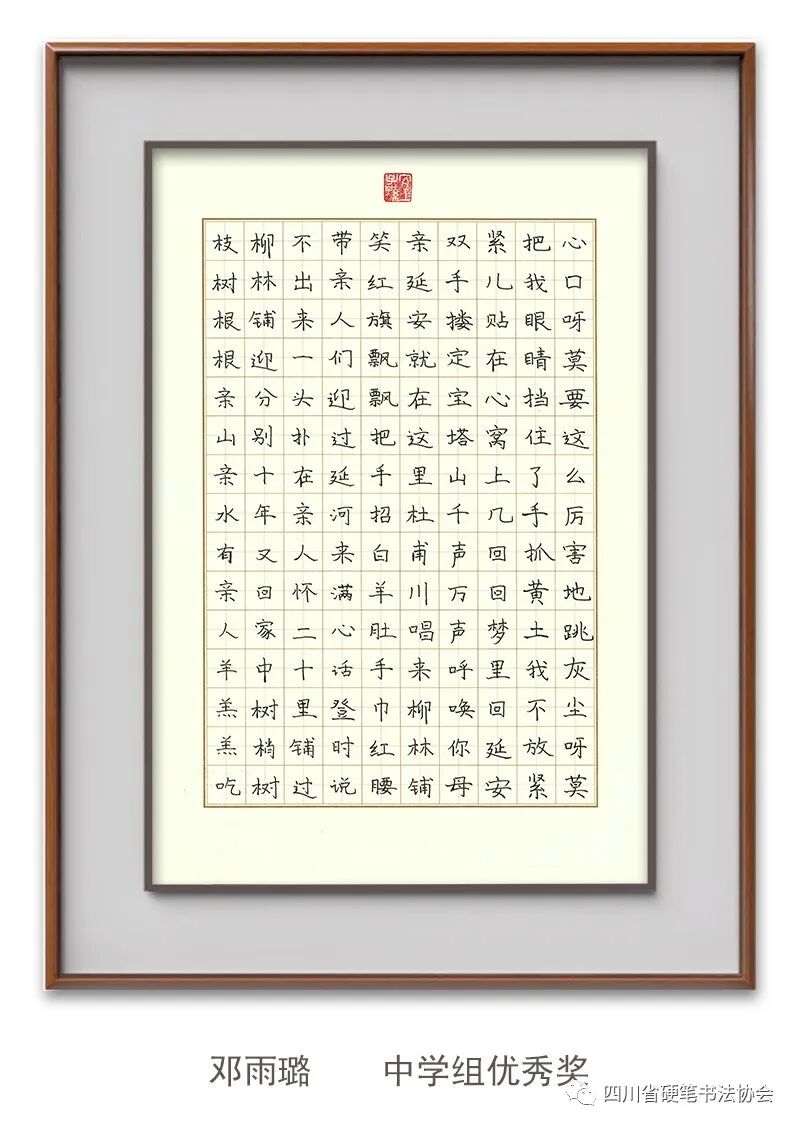 心口呀莫要这么厉害地跳灰尘呀莫
把我眼睛挡住了手抓黄土我不放紧
紧儿贴在心窝上几回回梦里回延安
双手搂定宝塔山千声万声呼唤你母
亲延安就在这里杜甫川唱来柳林铺
笑红旗飘飘把手招白羊肚手巾红腰
带亲人们迎过延河来满心话登时说
不出来一头扑在亲人怀二十里铺过
柳林铺迎分别十年又回家中树梢树
枝树根根亲山亲水有亲人羊羔羔吃
邓雨璐 中学组优秀奖
四川省硬笔书法协会